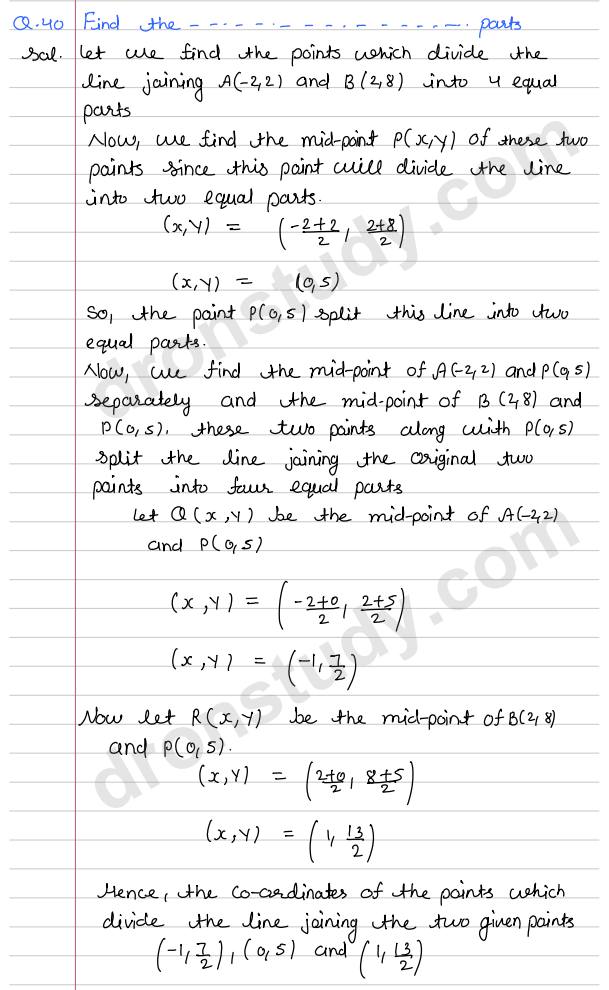 Q.40 Find the ------------------ parts
Sol. Let we find the points which divide the
line joining A(-2,2) and B(2,8) into 4 equal
parts
Now, we find the mid-point P(x,y) of these two
points since this point will divide the line
into two equal parts.
(x,y) = (-2+2/2, 2+8/2)
(x,y) = (0,5)
So, the point P(0,5) split this line into two
equal parts.
Now, we find the mid-point of A(-2,2) and P(0,5)
separately and the mid-point of B(2,8) and
P(0,5). these two points along with P(0,5)
split the line joining the original two
points into four equal parts
Let Q(x,y) be the mid-point of A(-2,2)
and P(0,5)
(x,y) = (-2+0/2, 2+5/2)
(x,y) = (-1, 7/2)
Now let R(x,y) be the mid-point of B(2,8)
and P(0,5).
(x,y) = (2+0/2, 8+5/2)
(x,y) = (1, 13/2)
Hence, the co-ordinates of the points which
divide the line joining the two given points
(-1, 7/2), (0,5) and (1, 13/2)
dronstudy.com
dronstudy.com